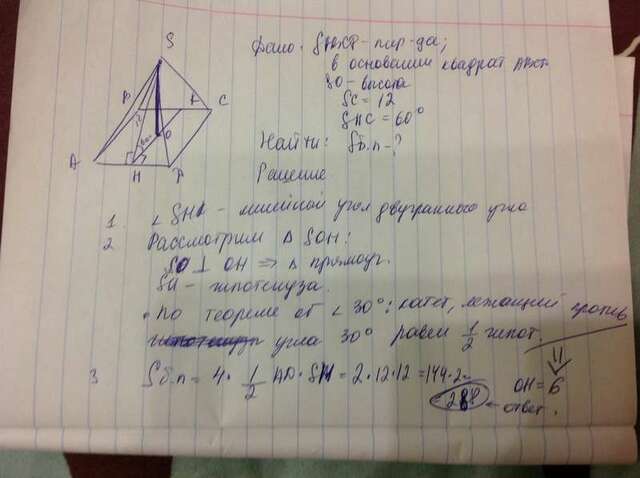 S
B K C
60°
O
A H D
Дано: SABCD - пир-да;
в основании квадрат ABCD
SO - высота
SC = 12
SHC = 60°
Найти: Sб.п - ?
Решение
1. ∠ SHK - линейной угол двугранного угла
2 Рассмотрим △ SOH:
SO ⊥ OH => △ прямоуг.
SH - гипотенуза.
• по теореме об ∠ 30°: катет, лежащий против
угла 30° равен 1/2 гипот.
⇓
OH = 6
3 Sб.п = 4 · 1/2 AD · SH = 2 · 12 · 12 = 144 · 2 =
= 288 ← ответ.